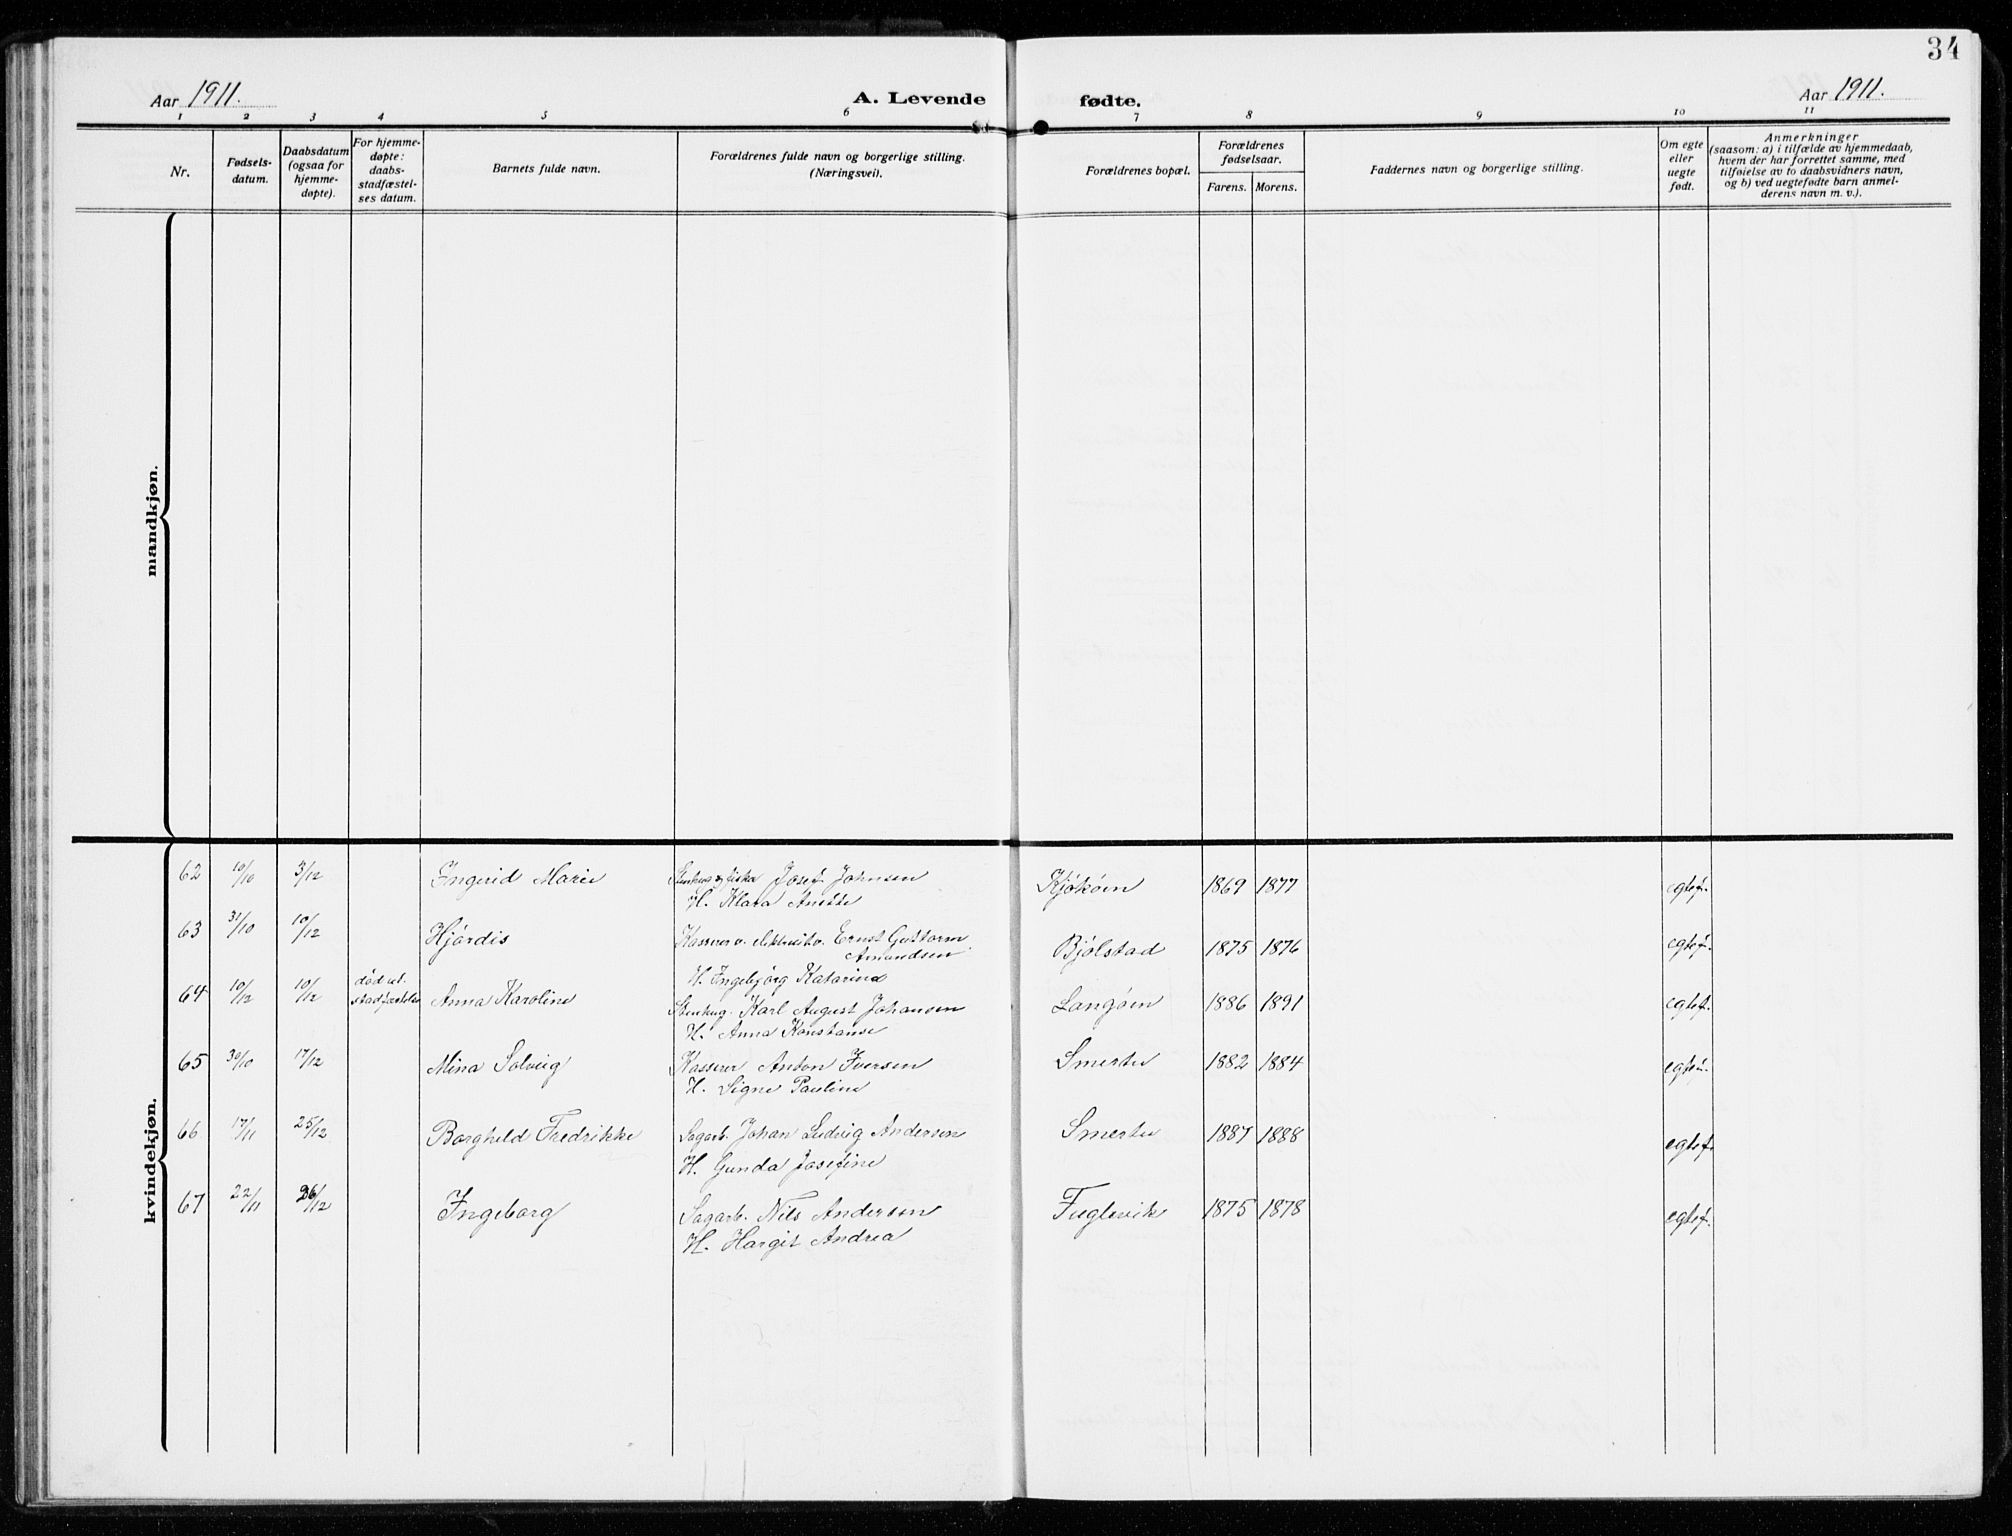 34
Aar 1911.
A. Levende fødte.
Aar 1911.
1 2 3 4 5 6 7 8 9 10 11
Nr.
Fødsels-
datum.
Daabsdatum
(ogsaa for
hjemme-
døpte).
For hjemme-
døpte:
daabs-
stadfæstel-
ses datum.
Barnets fulde navn.
Forældrenes fulde navn og borgerlige stilling.
(Næringsvei).
Forældrenes bopæl.
Forældrenes
fødselsaar.
Farens. Morens.
Faddernes navn og borgerlige stilling.
Om egte
eller
uegte
født.
Anmerkninger
(saasom: a) i tilfælde av hjemmedaab,
hvem der har forrettet samme, med
tilføielse av to daabsvidners navn,
og b) ved uegtefødte barn anmel-
derens navn m. v.).
mandkjøn.
kvindekjøn.
62 10/10 3/12 Ingerid Marie Stenhug. og fisker Josef Johnsen Kjøkøen 1869 1877 egtef.
H. Klara Anette
63 31/10 10/12 Hjørdis Kasserer v. Ernst Guttorm Bjølstad 1875 1876 egtef.
Amundsen
H. Ingebjørg Katarina
64 10/12 10/12 død u. stadfæstelse Anna Karoline Stenhug. Karl August Johansen Langøen 1886 1891 egtef.
H. Anna Konstanse
65 30/10 17/12 Mina Solveig Kasserer Anton Iversen Smertu 1882 1884 egtef.
H. Signe Pauline
66 17/11 25/12 Borghild Fredrikke Sagarb. Johan Ludvig Andersen Smertu 1887 1888 egtef.
H. Gunda Josefine
67 22/11 26/12 Ingeborg Sagarb. Nils Andersen Fuglevik 1875 1878 egtef.
H. Hargit Andrea